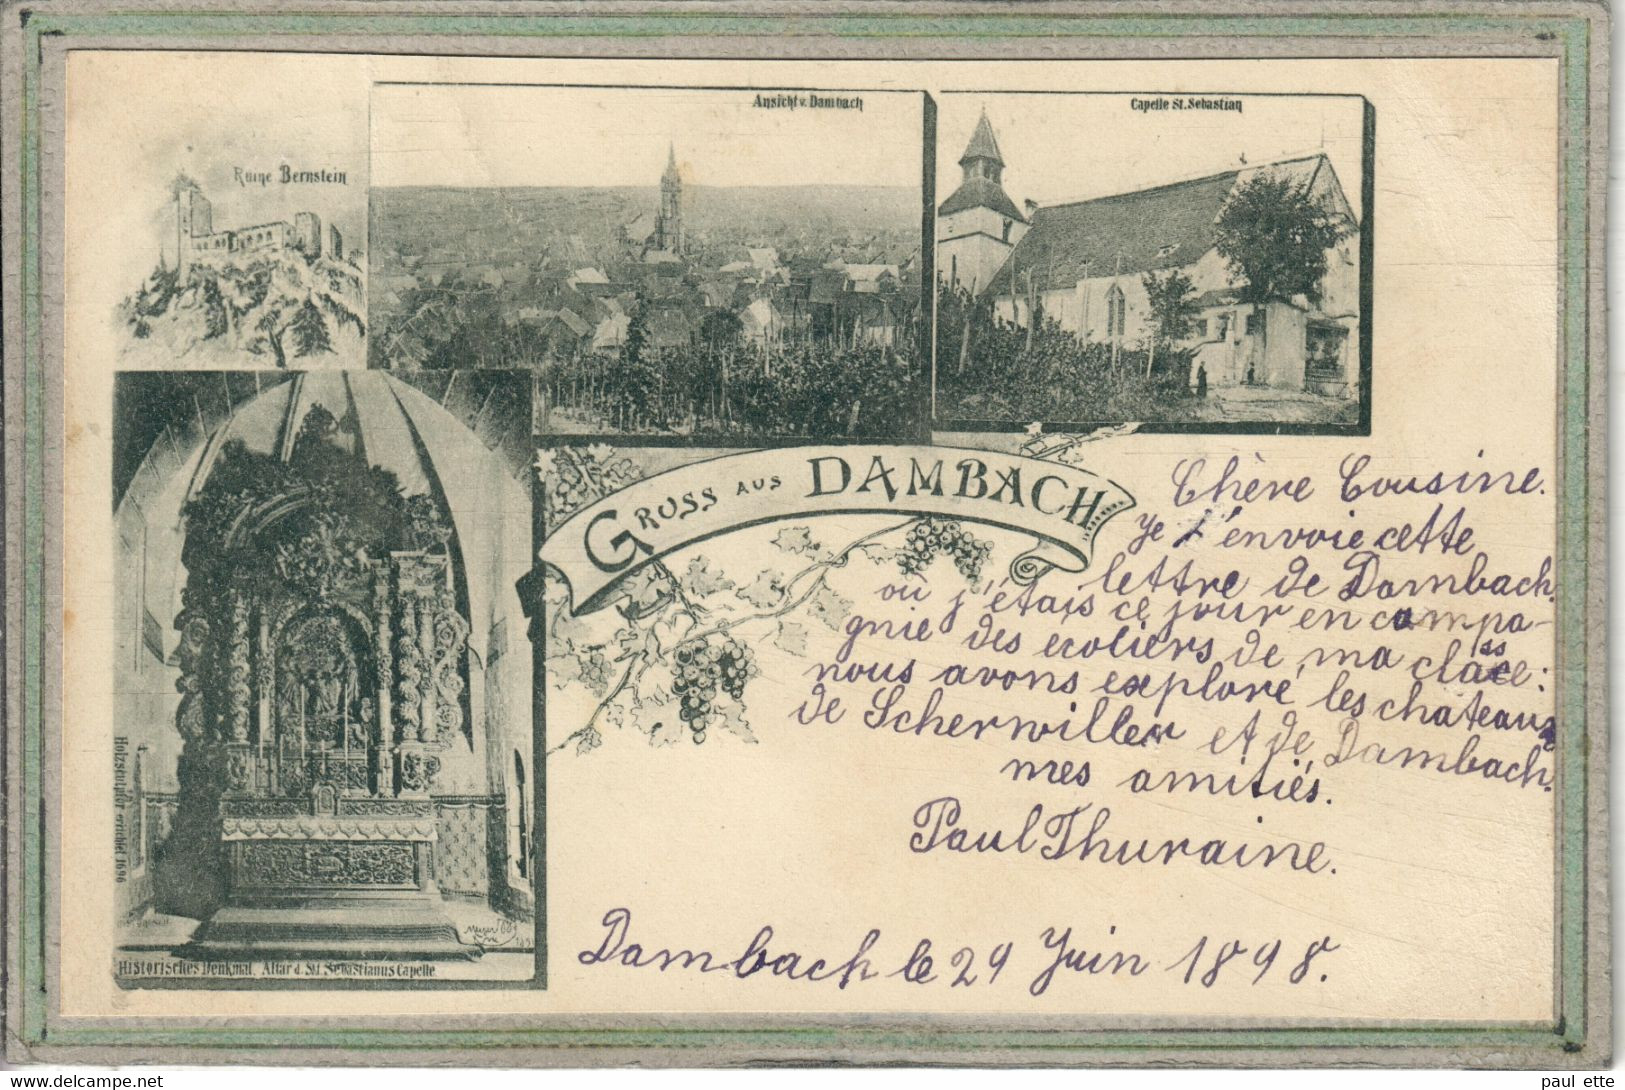 Ruine Bernstein
Ansicht v. Dambach
Capelle St. Sebastian
GRUSS AUS DAMBACH
Holzsculptur errichtet 1696
Historisches Denkmal, Altar d. Sct. Sebastianus Capelle
Chère Cousine.
je t'envoie cette
lettre de Dambach
où j'étais ce jour en compa-
gnie des ecoliers de ma classe:
nous avons exploré les chateaux
de Scherwiller et de Dambach.
mes amitiés.
Paul Thuraine.
Dambach le 29 Juin 1898.
paul ette